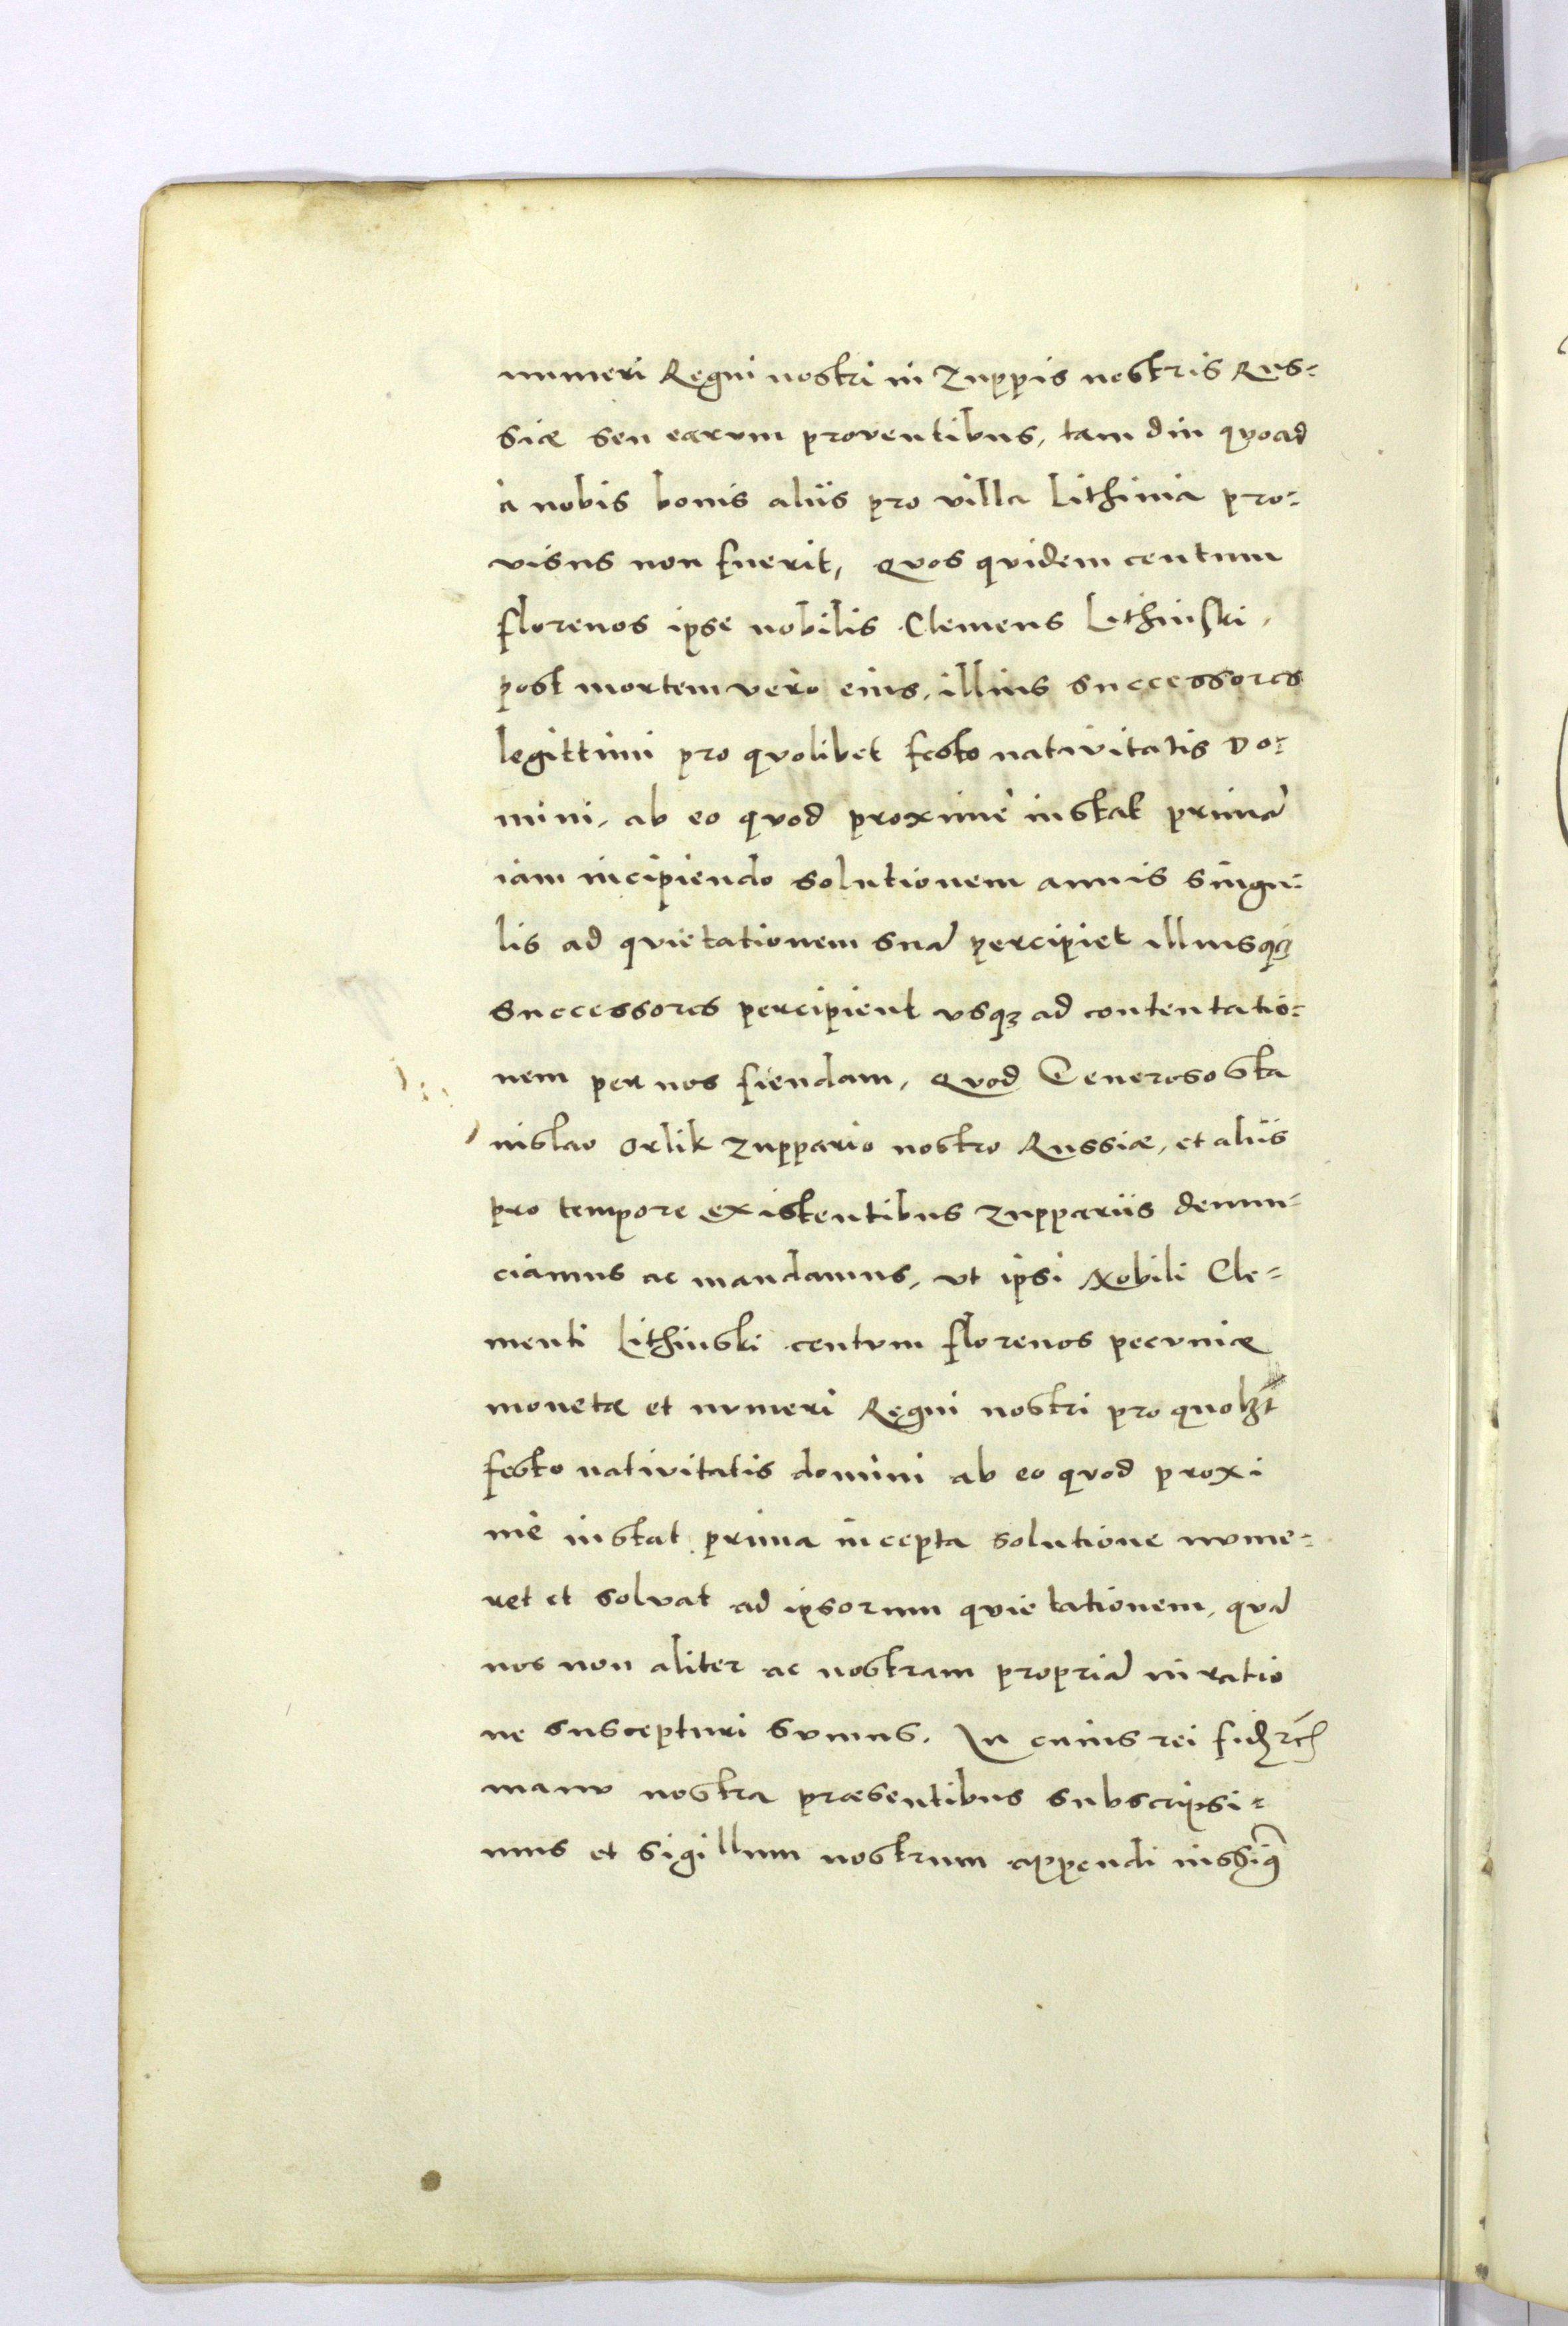 numeri Regni nostri in Zuppis nostris Rus=
siæ seu earum proventibus, tam diu quoad
à nobis bonis aliis pro villa Lithinia pro=
visus non fuerit, Quos quidem centum
florenos ipse nobilis Clemens Lithinski,
post mortem vero eius, illius successores
legittimi pro quolibet festo nativitatis Do=
mini, ab eo quod proximè instat primã
iam incipiendo solutionem annis singu=
lis ad quietationem suã percipiet illiusqꝫ
successores percipient vsqꝫ ad contentatio=
nem per nos fiendam, Quod Generoso Sta
nislao Orlik Zuppario nostro Russiæ, et aliis
pro tempore existentibus zuppariis denun=
ciamus ac mandamus, vt ipsi Nobili Cle=
menti Lithinski centum florenos pecuniæ
monetæ et numeri Regni nostri pro quolꝫt
festo nativitatis domini ab eo quod proxi
mè instat prima incepta solutione nume=
ret et solvat ad ipsorum quietationem, quã
nos non aliter ac nostram propriã in ratio
ne suscepturi sumus. In cuius rei fid
manu nostra præsentibus subscripsi=
mus et sigillum nostrum appendi iussimꝰ